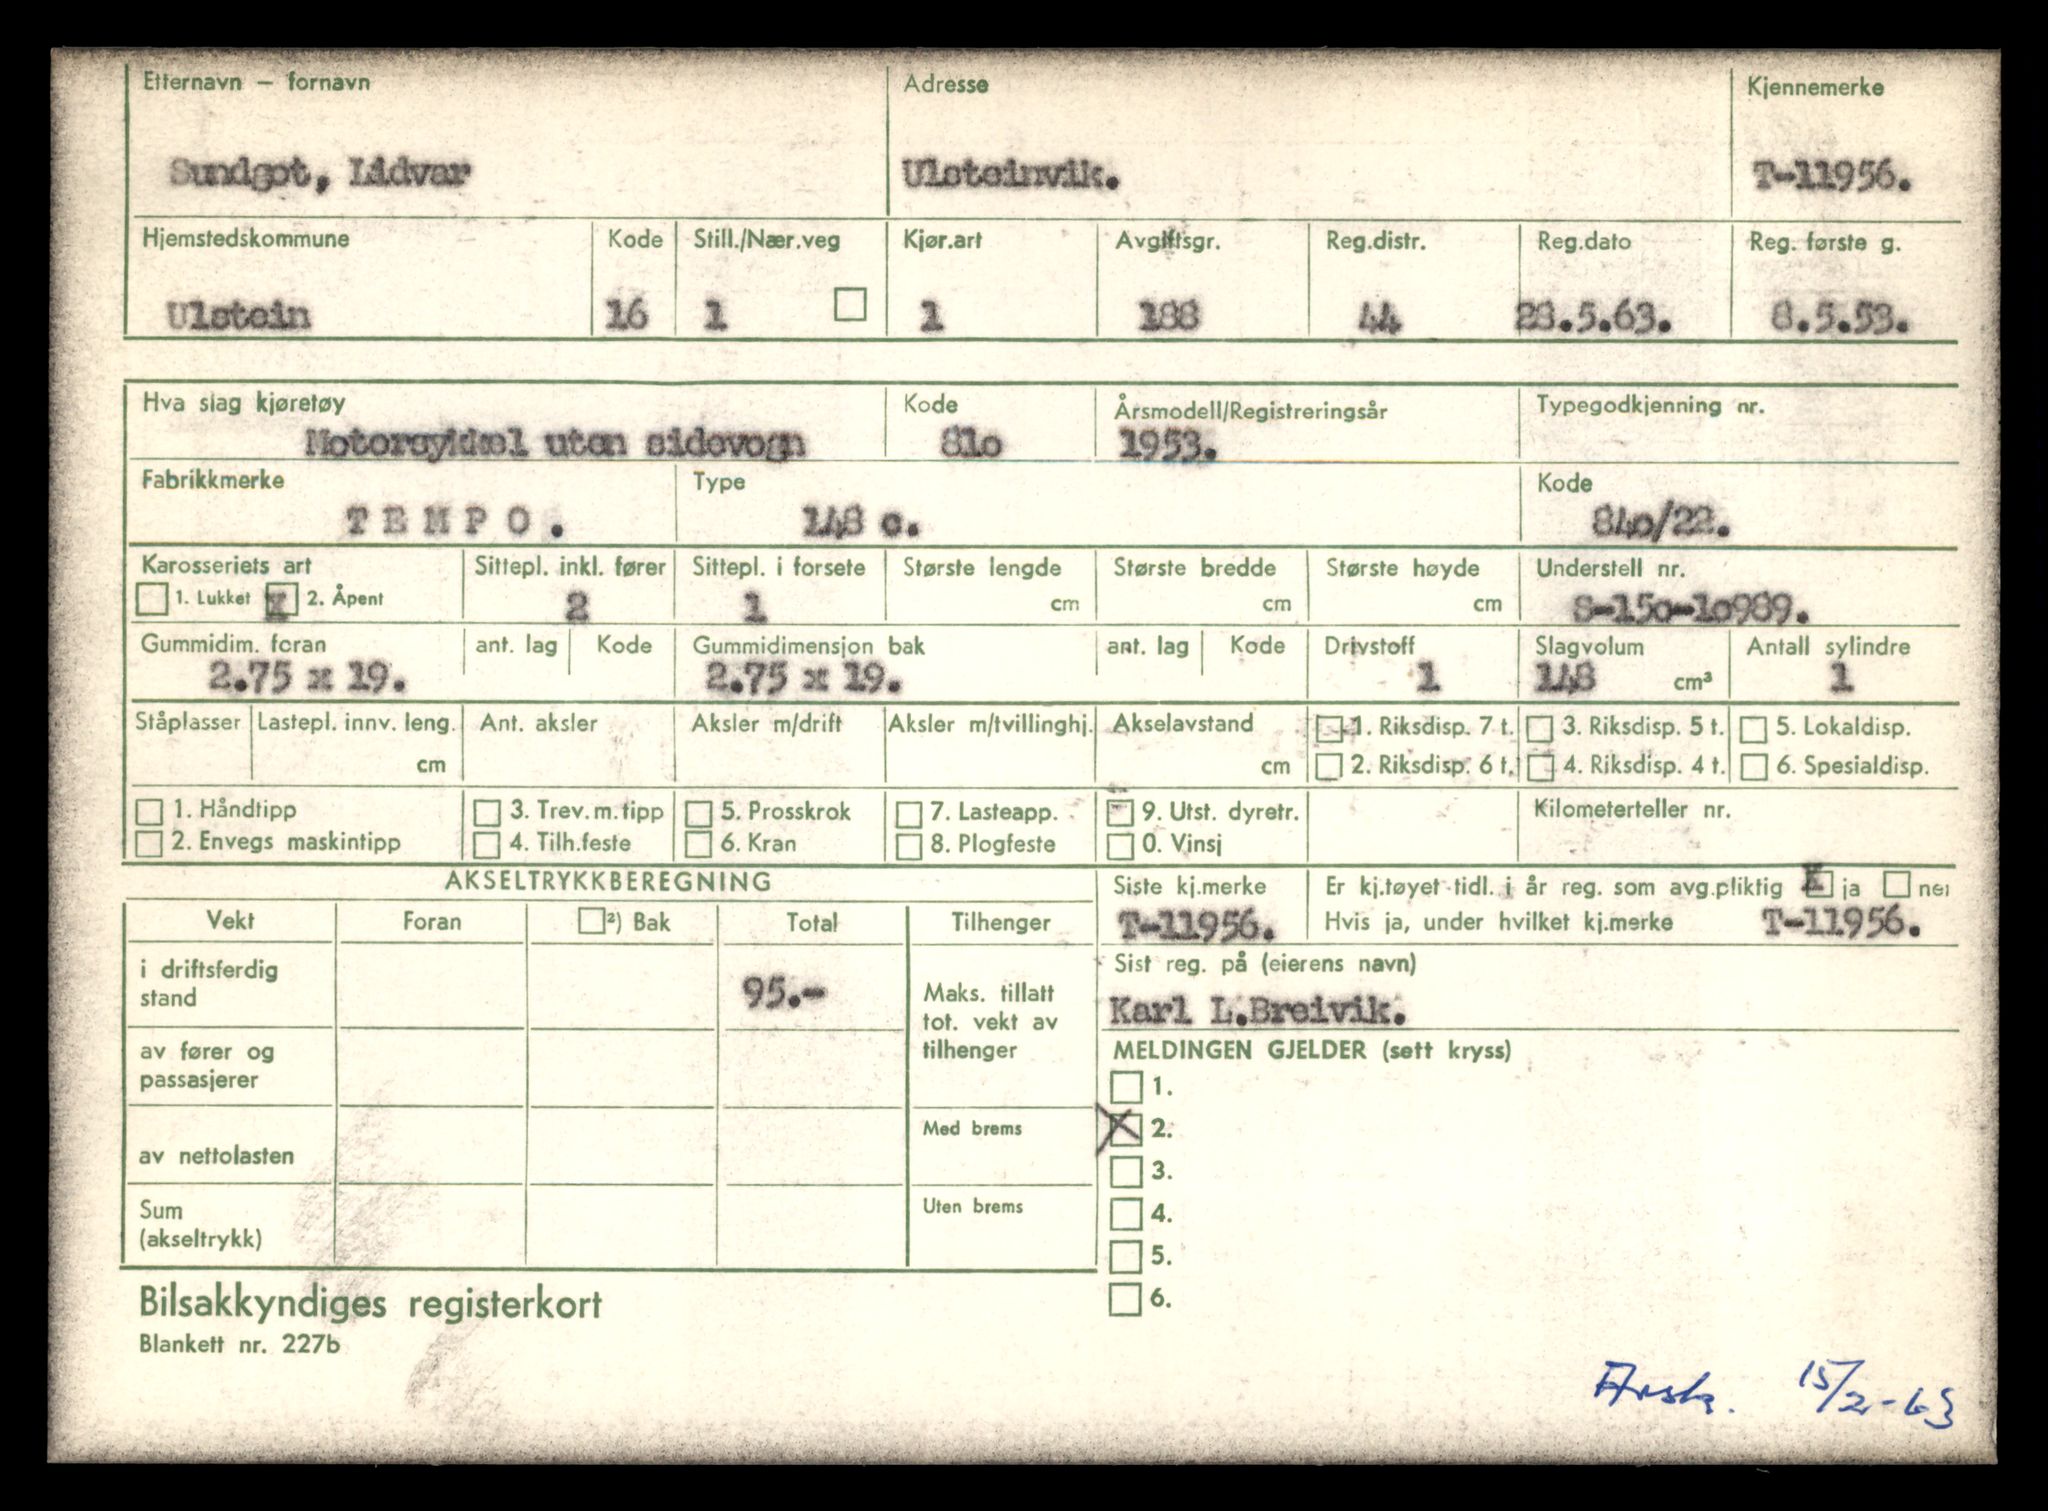 Etternavn — fornavn Adresse Kjennemerke
Sundgot, Lidvar Ulsteinvik. T-11956.
Hjemstedskommune Kode Still./Nær.veg Kjør.art Avgiftsgr. Reg.distr. Reg.dato Reg. første g.
Ulstein 16 1 1 188 44 28.5.63. 8.5.53.
Hva slag kjøretøy Kode Årsmodell/Registreringsår Typegodkjenning nr.
Motorsykkel uten sidevogn 81o 1953.
Fabrikkmerke Type Kode
T E M P O . 148 c. 84o/22.
Karosseriets art Sittepl. inkl. fører Sittepl. i forsete Største lengde Største bredde Største høyde Understell nr.
1. Lukket X 2. Åpent 2 1 cm cm cm S-15o-1o989.
Gummidim. foran ant. lag Kode Gummidimensjon bak ant. lag Kode Drivstoff Slagvolum Antall sylindre
2.75 x 19. 2.75 x 19. 1 148 cm³ 1
Ståplasser Lastepl. innv. leng. Ant. aksler Aksler m/drift Aksler m/tvillinghj. Akselavstand 1. Riksdisp. 7 t. 3. Riksdisp. 5 t. 5. Lokaldisp.
cm cm 2. Riksdisp. 6 t. 4. Riksdisp. 4 t. 6. Spesialdisp.
1. Håndtipp 3. Trev.m.tipp 5. Prosskrok 7. Lasteapp. 9. Utst. dyretr. Kilometerteller nr.
2. Envegs maskintipp 4. Tilh.feste 6. Kran 8. Plogfeste 0. Vinsj
AKSELTRYKKBEREGNING Siste kj.merke Er kj.tøyet tidl. i år reg. som avg.pliktig X ja nei
Vekt Foran ²) Bak Total Tilhenger T-11956. Hvis ja, under hvilket kj.merke T-11956.
i driftsferdig stand 95.- Maks. tillatt tot. vekt av tilhenger Sist reg. på (eierens navn)
Karl L.Breivik.
av fører og passasjerer MELDINGEN GJELDER (sett kryss)
1.
Med brems X 2.
av nettolasten 3.
Sum (akseltrykk) Uten brems 4.
5.
Bilsakkyndiges registerkort 6.
Blankett nr. 227b
15/2-63